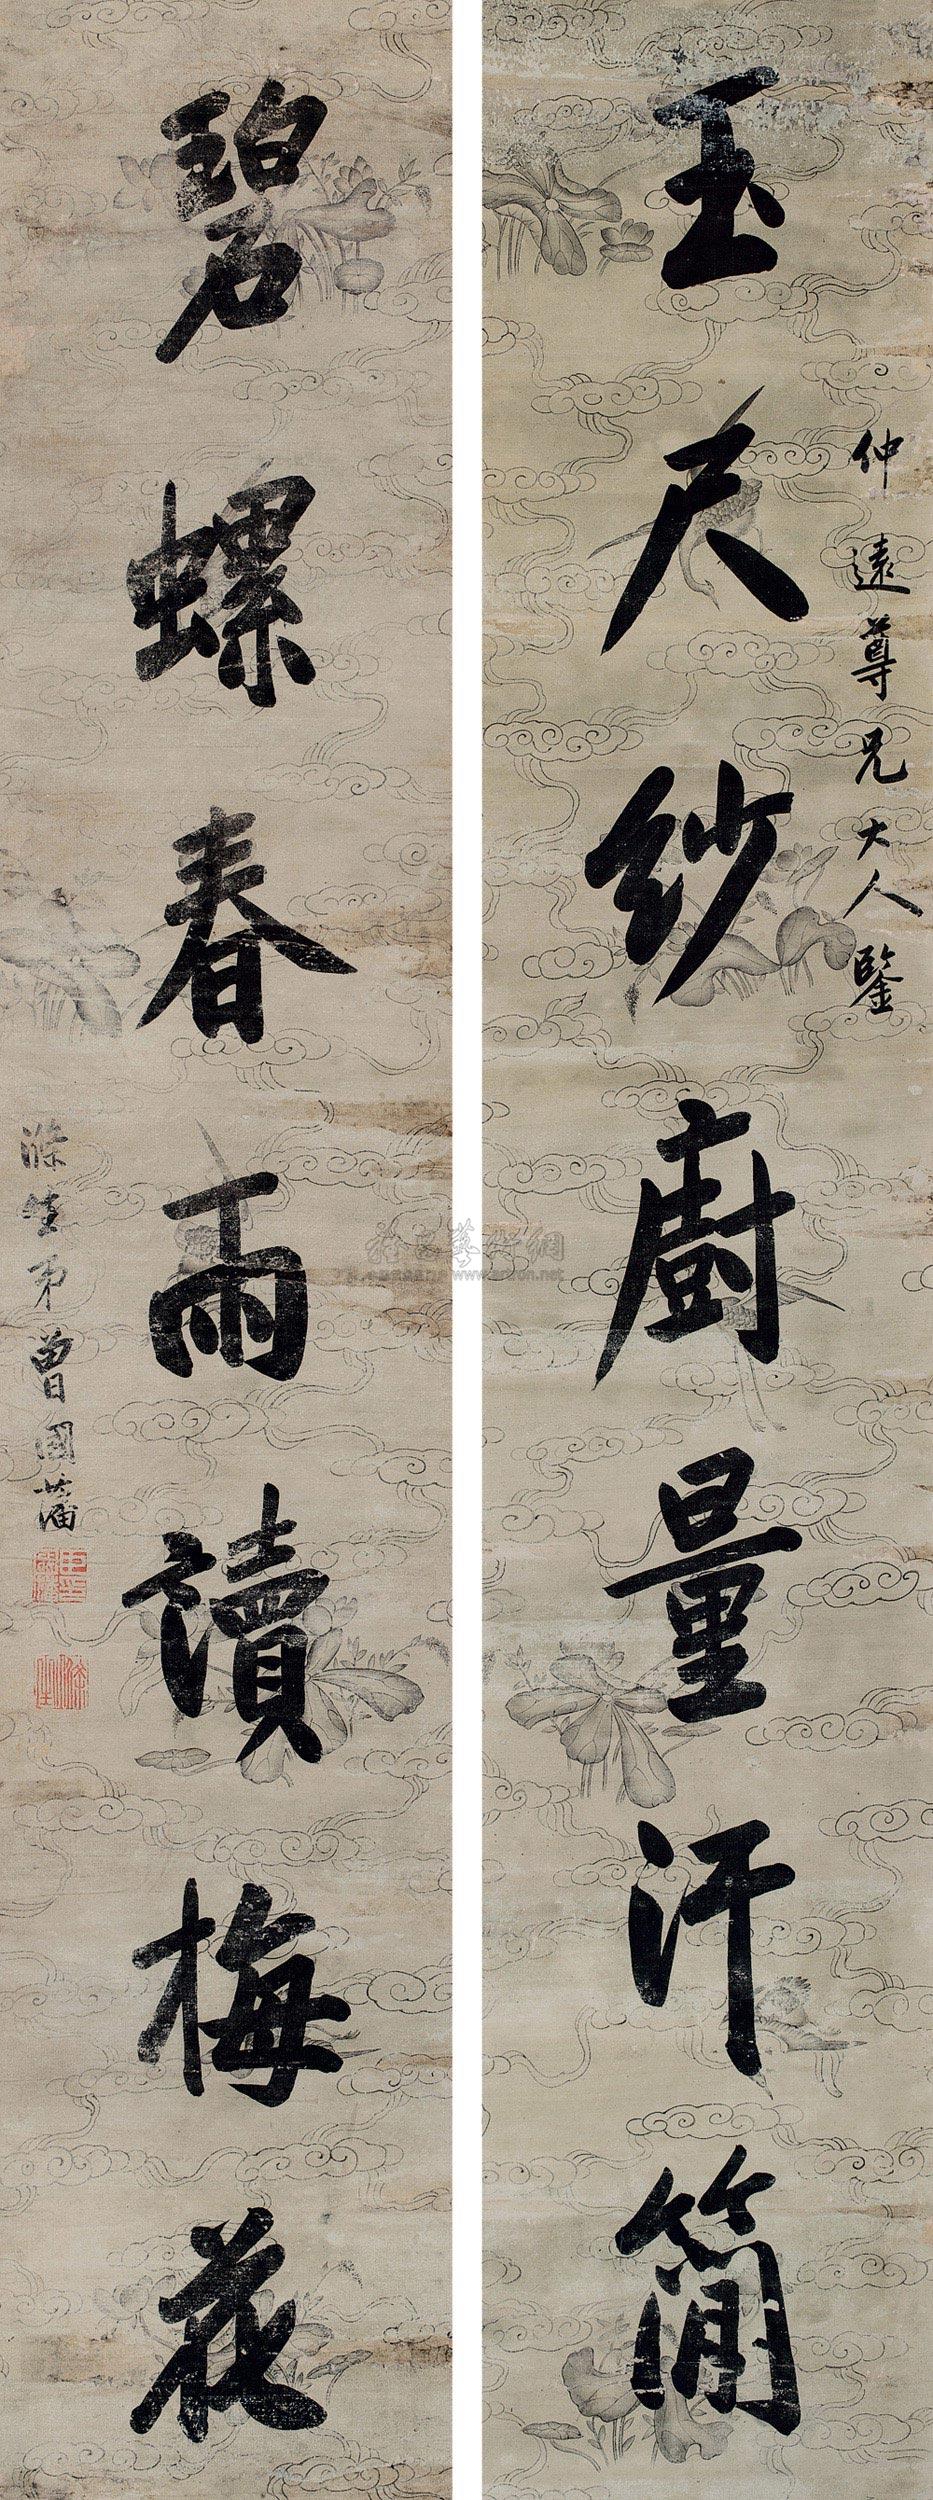 玉尺紗廚量汗簡
仲遠尊兄大人鑒
碧螺春雨讀梅花
滌生弟曾國藩
www.artron.net